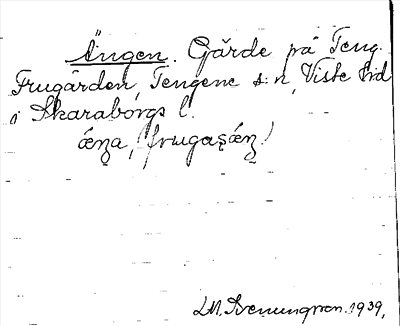 Ängen. Gärde på Teng.
Frugården, Tengene s:n, Viste hd
i Skaraborgs l.
ǽṇa, (frugaṣǽṇ)
L.M. Svenungsson. 1939.